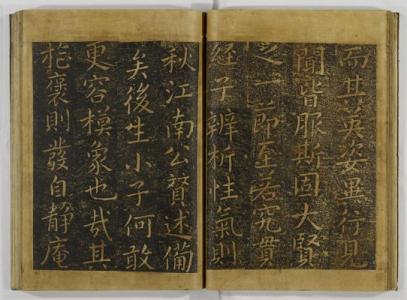 而其英姿異行見
聞皆服斯固大賢
之一節至若究貫
經子辨析性氣則
秋江南公贊述備
矣後生小子何敢
更容模象也哉其
褒則發自靜庵